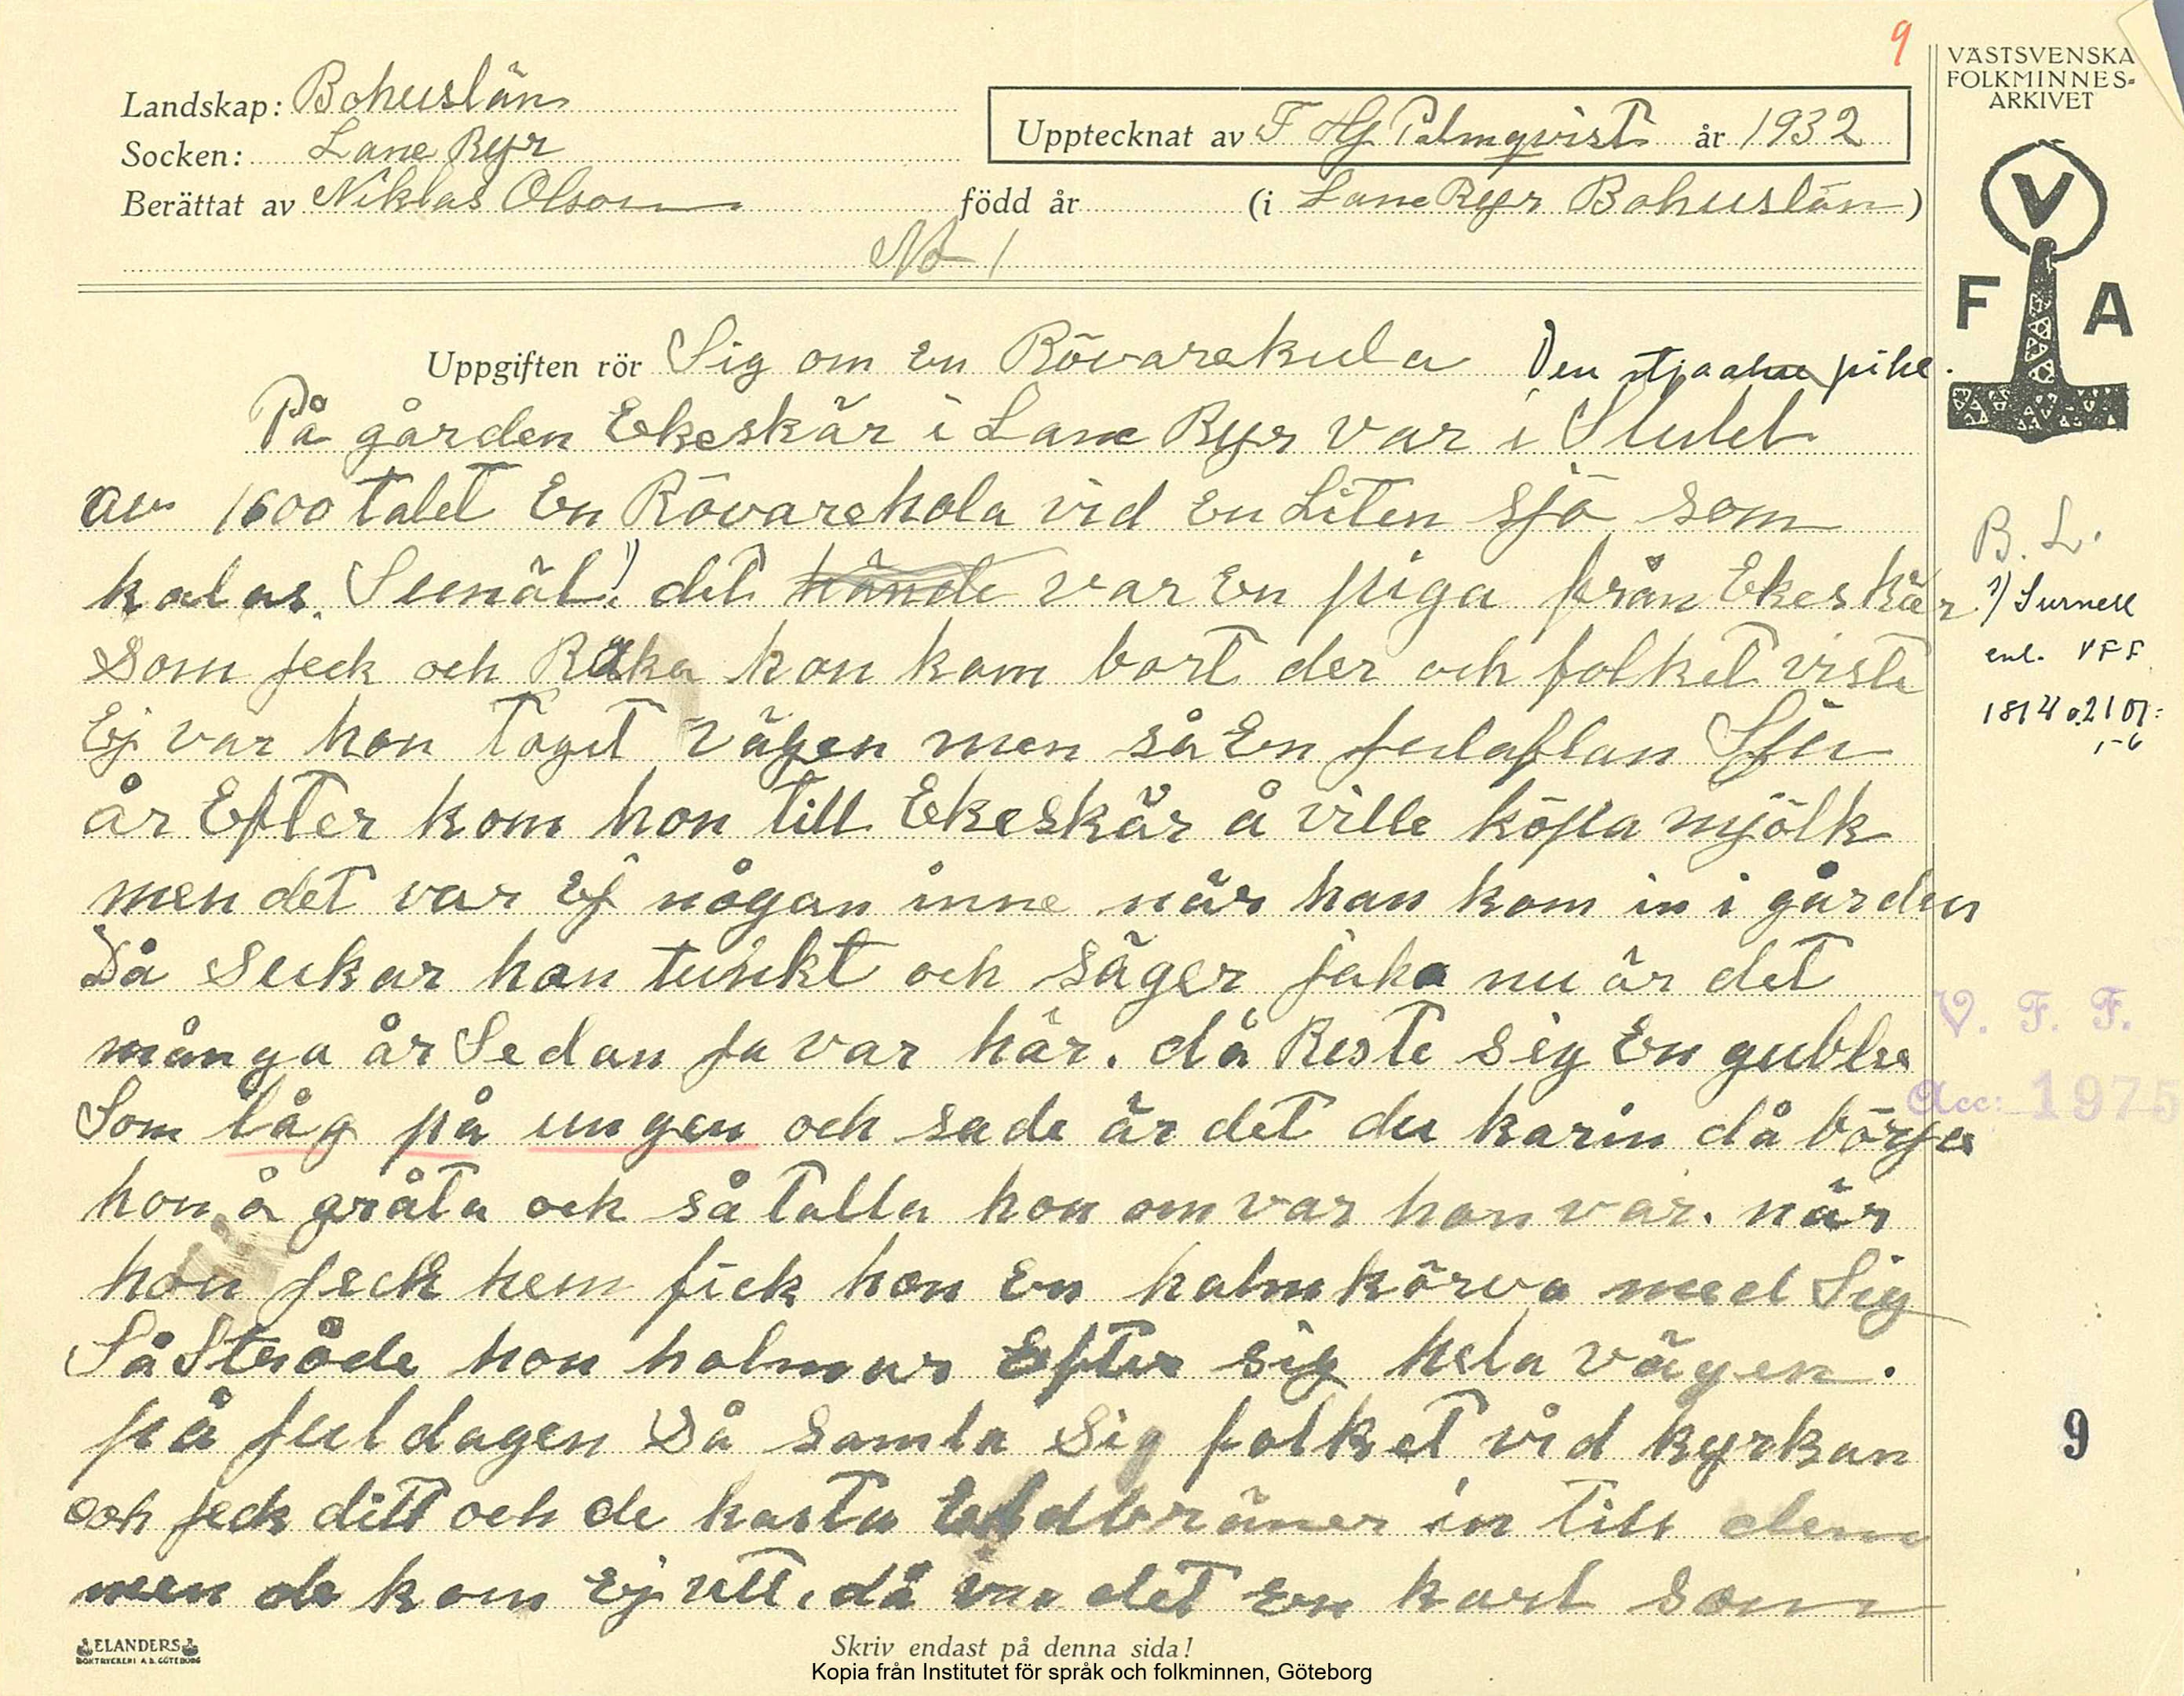 9
VÄSTSVENSKA
FOLKMINNES-
ARKIVET
Landskap: Bohuslän
Socken: Lane Ryr
Upptecknat av F Hj Palmqvist år 1932
Berättat av Niklas Olson född år (i Lane Ryr Bohuslän)
No 1
V
F A
Uppgiften rör Sig om en Rövarekula Den pihl.
På gården Ekeskär i Lane Ryr var i Slutet
av 1600 talet En Rövarehola vid En Liten sjö som
kalas. 1) det hände var En piga från Ekeskär
som jeck och Räka hon kom bort der och folket viste
Ej var hon toget vägen men så En julaftan Sju
år Efter kom hon till Ekeskär å ville köpa mjölk
men det var Ej någon inne när hon kom in i gården
Då sukar hon tunkt och säger jaka nu är det
många år Sedan ja var här. då Reste sig En gubbe
Som låg på ungen och sade är det du karin då börja
hon å gråta och så talla hon om var hon var. når
hon jeck hem fick hon En halmkärva med Sig
Så Ströde hon halmar Efter sig hela vägen.
på juldagen Då samla Sig folket vid kyrkan
och jeck ditt och de kasta eldbräner in till dem
men de kom Ej utt. då var det En karl som
B. L.
1) Surnell
enl. VFF
1814 s. 21 01:
1-6
V. F. F.
Acc: 1975
9
ELANDERS
BOKTRYCKERI A.B. GÖTEBORG
Skriv endast på denna sida!
Kopia från Institutet för språk och folkminnen, Göteborg